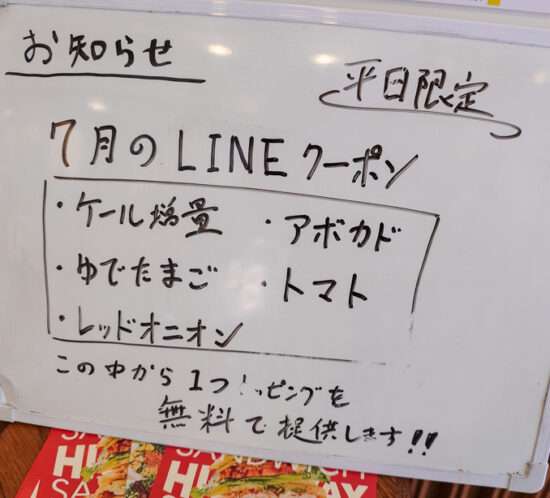 お知らせ
平日限定
7月のLINEクーポン
・ケール増量 ・アボカド
・ゆでたまご ・トマト
・レッドオニオン
この中から1つ ッピングを
無料で提供します!!